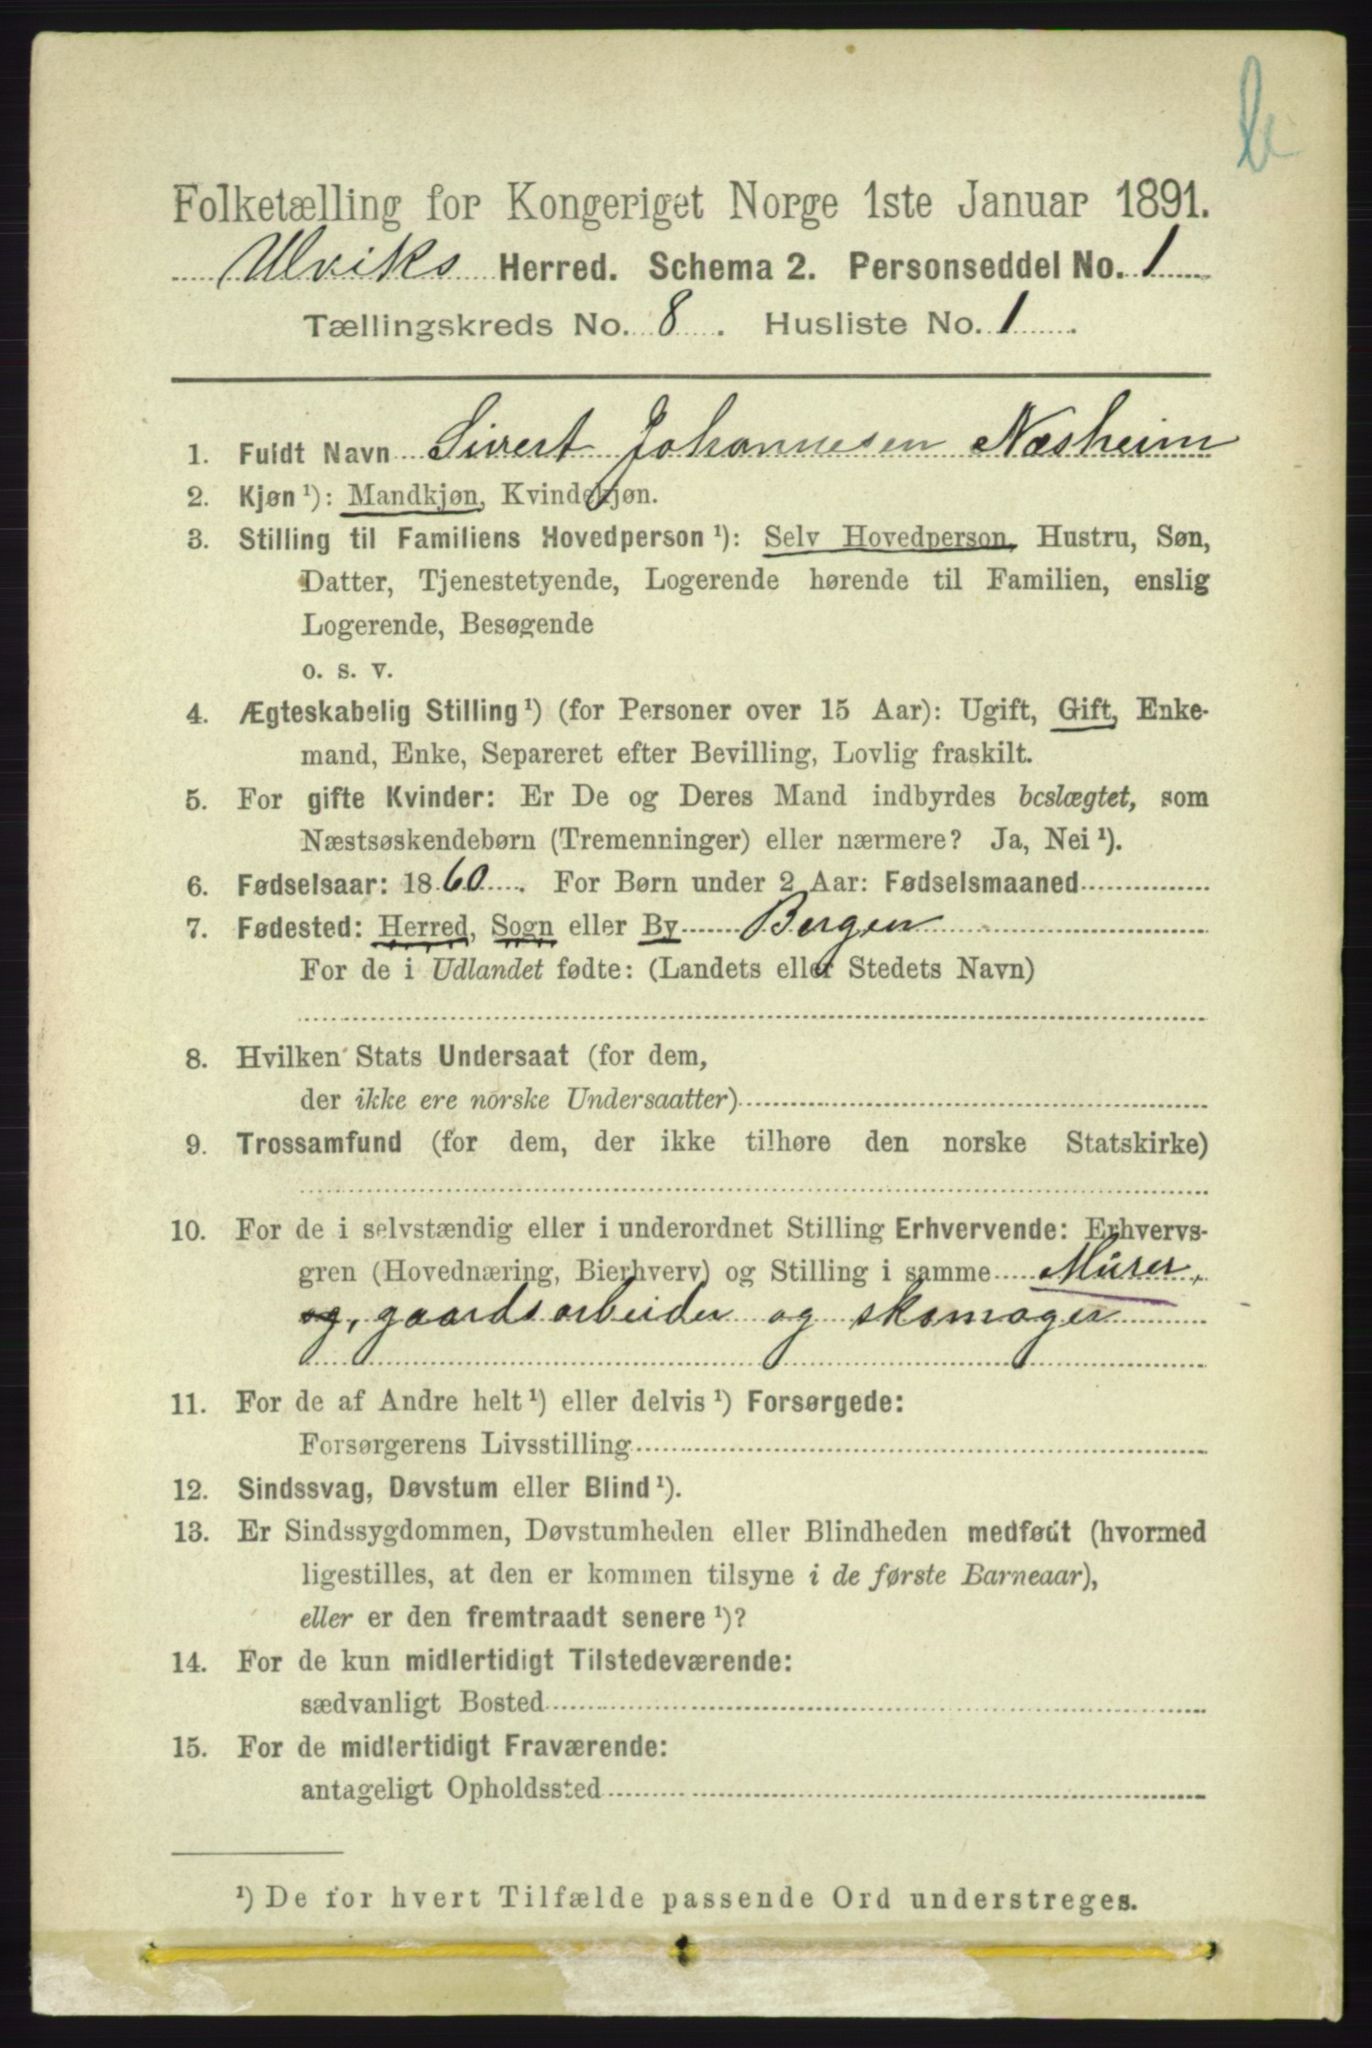 Folketælling for Kongeriget Norge 1ste Januar 1891.
Ulviks Herred. Schema 2. Personseddel No. 1
Tællingskreds No. 8. Husliste No. 1.
1. Fuldt Navn Sivert Johannesen Næsheim
2. Kjøn ¹): Mandkjøn, Kvindekjøn.
3. Stilling til Familiens Hovedperson ¹): Selv Hovedperson, Hustru, Søn,
Datter, Tjenestetyende, Logerende hørende til Familien, enslig
Logerende, Besøgende
o. s. v.
4. Ægteskabelig Stilling ¹) (for Personer over 15 Aar): Ugift, Gift, Enke-
mand, Enke, Separeret efter Bevilling, Lovlig fraskilt.
5. For gifte Kvinder: Er De og Deres Mand indbyrdes beslægtet, som
Næstsøskendebørn (Tremenninger) eller nærmere? Ja, Nei ¹).
6. Fødselsaar: 1860. For Børn under 2 Aar: Fødselsmaaned
7. Fødested: Herred, Sogn eller By Bergen
For de i Udlandet fødte: (Landets eller Stedets Navn)
8. Hvilken Stats Undersaat (for dem,
der ikke ere norske Undersaatter)
9. Trossamfund (for dem, der ikke tilhøre den norske Statskirke)
10. For de i selvstændig eller i underordnet Stilling Erhvervende: Erhvervs-
gren (Hovednæring, Bierhverv) og Stilling i samme Murer,
og, gaardsarbeider og skomager
11. For de af Andre helt ¹) eller delvis ¹) Forsørgede:
Forsørgerens Livsstilling
12. Sindssvag, Døvstum eller Blind ¹).
13. Er Sindssygdommen, Døvstumheden eller Blindheden medfødt (hvormed
ligestilles, at den er kommen tilsyne i de første Barneaar),
eller er den fremtraadt senere ¹)?
14. For de kun midlertidigt Tilstedeværende:
sædvanligt Bosted
15. For de midlertidigt Fraværende:
antageligt Opholdssted
¹) De for hvert Tilfælde passende Ord understreges.